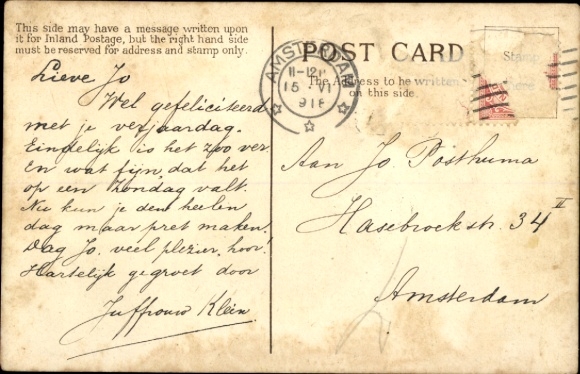 This side may have a message written upon
it for Inland Postage, but the right hand side
must be reserved for address and stamp only.
Lieve Jo
Wel gefeliciteerd
met je verjaardag.
Eindelijk is het zoo ver
En wat fijn, dat het
op een Zondag valt.
Nu kun je den heelen
dag maar pret maken.
Dag Jo, veel plezier, hoor!
Hartelijk gegroet door
Juffrouw Klein
POST CARD
The Address to be written
on this side.
Stamp
AMSTERDAM
11-12
15 VI
918
Aan Jo Posthuma
Hasebroekstr. 34 II
Amsterdam